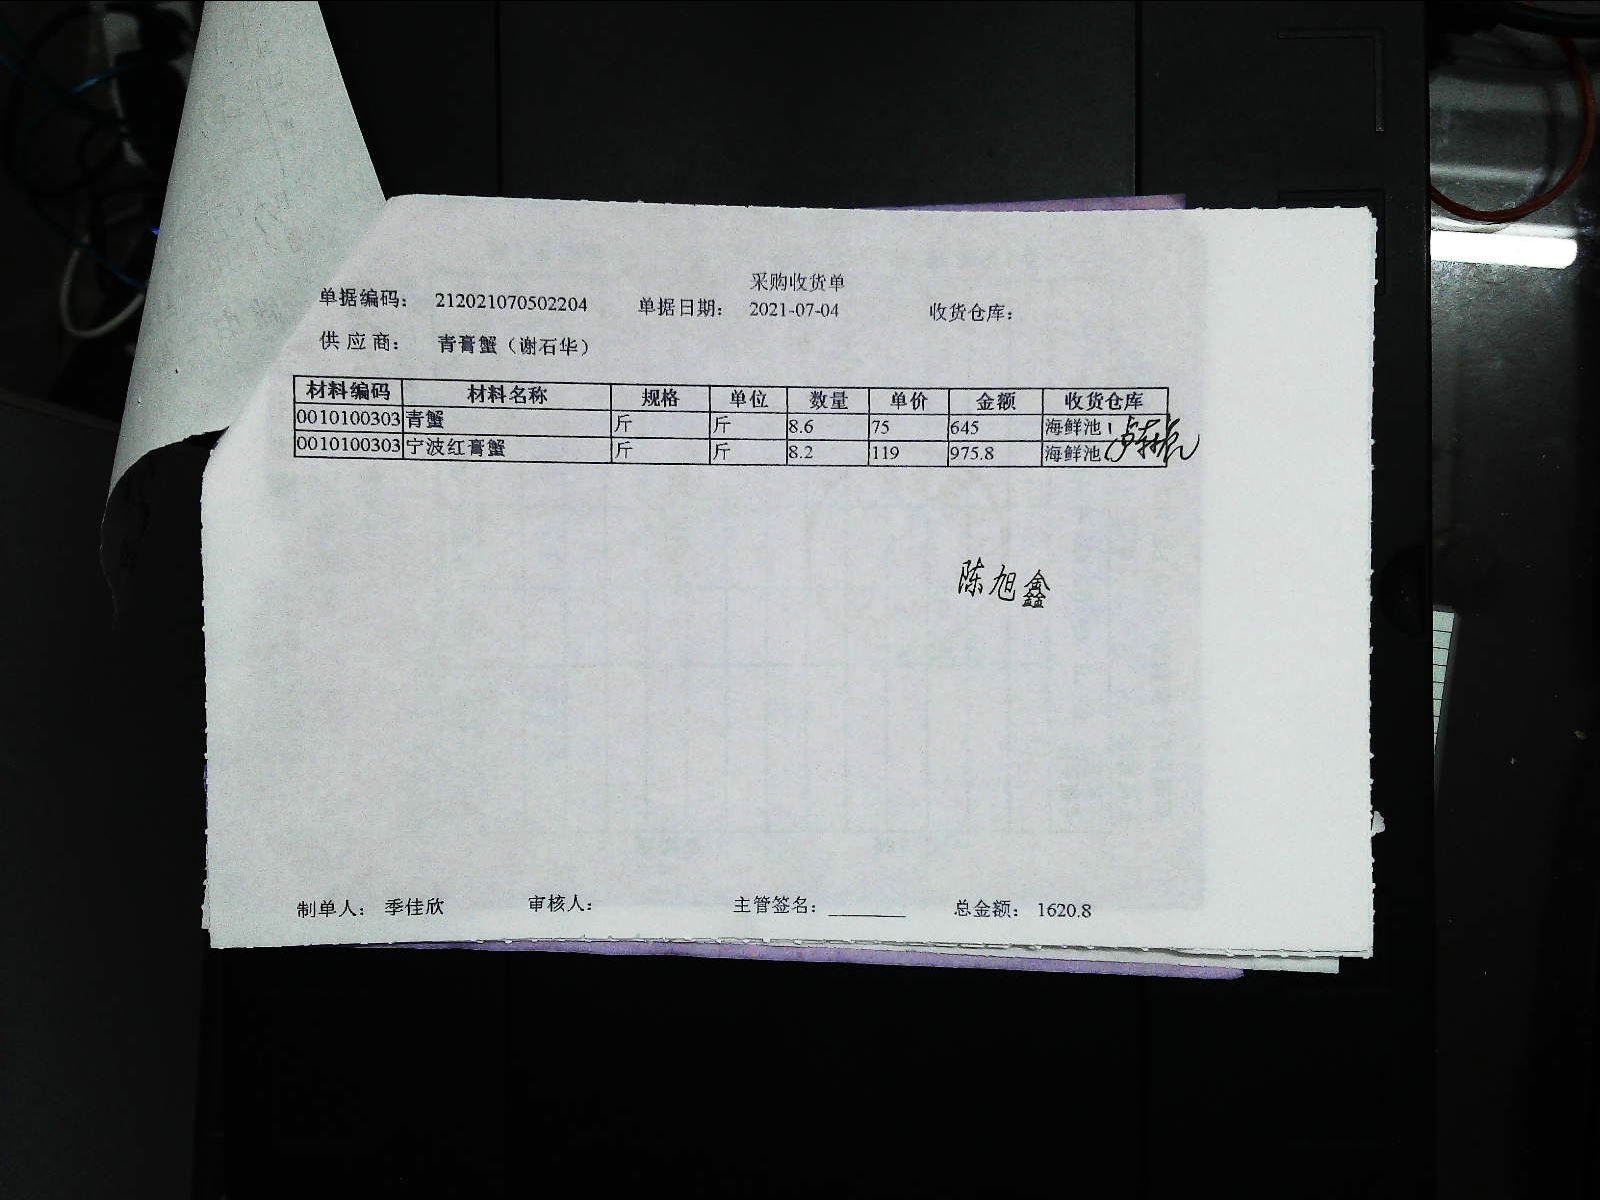 采购收货单
单据编码： 212021070502204 单据日期： 2021-07-04 收货仓库：
供 应 商： 青膏蟹（谢石华）
材料编码 材料名称 规格 单位 数量 单价 金额 收货仓库
0010100303 青蟹 斤 斤 8.6 75 645 海鲜池
0010100303 宁波红膏蟹 斤 斤 8.2 119 975.8 海鲜池
陈旭鑫
制单人： 季佳欣 审核人： 主管签名： 总金额： 1620.8